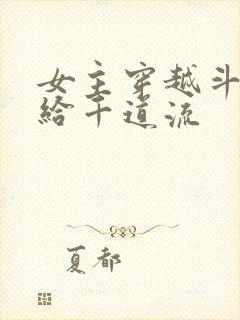 女主穿越斗
给千道流
夏都